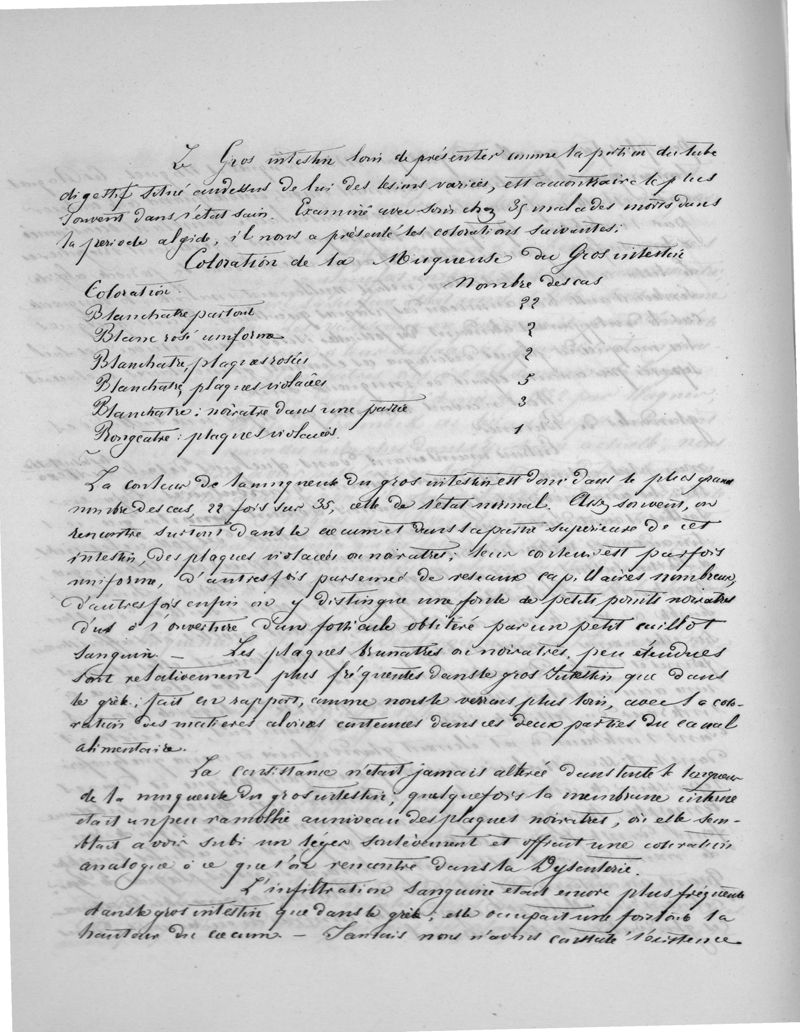 Le Gros intestin loin de présenter comme la portion du tube
digestif situé audessus de lui des lésions variées, est au contraire le plus
souvent dans l'état sain. Examiné avec soin chez 35 malades morts dans
la periode algide, il nous a présenté les colorations suivantes;
Coloration de la Muqueuse du Gros intestin
Coloration. Nombre des cas
Blanchatre partout 22
Blanc rosé uniforme 2
Blanchatre plaques rosées 2
Blanchatre, plaques violacées 5
Blanchatre; noiratre dans une partie 3
Rougeatre: plaques violacées. 1
La couleur de la muqueuse du gros intestin est donc dans le plus grand
nombre des cas, 22 fois sur 35, celle de l'état normal. Assez souvent, on
rencontre surtout dans le cœcum et dans la partie superieure de cet
intestin, des plaques violacées ou noiratres; leur couleur est parfois
uniforme, d'autres fois parsemée de reseaux capillaires nombreux,
d'autres fois enfin on y distingue une foule de petits points noiratres
dus à l'ouverture d'un follicule oblitéré par un petit caillot
sanguin. — Les plaques brunatres ou noiratres, peu étendues
sont relativement plus fréquentes dans le gros Intestin que dans
le grêle; fait en rapport, comme nous le verrons plus loin, avec la colo-
ration des matieres alvines contenues dans ces deux parties du canal
alimentaire.
La consistance n'était jamais altérée dans toute la longueur
de la muqueuse du gros intestin, quelquefois la membrane interne
était un peu ramollie au niveau des plaques noiratres, où elle sem-
blait avoir subi un léger soulèvement et offrait une coloration
analogue à ce que l'on rencontre dans la Dysenterie.
L'infiltration sanguine était encore plus fréquente
dans le gros intestin que dans le grêle; elle occupait une fois toute la
hauteur du cœcum. — Jamais nous n'avons constaté l'existence